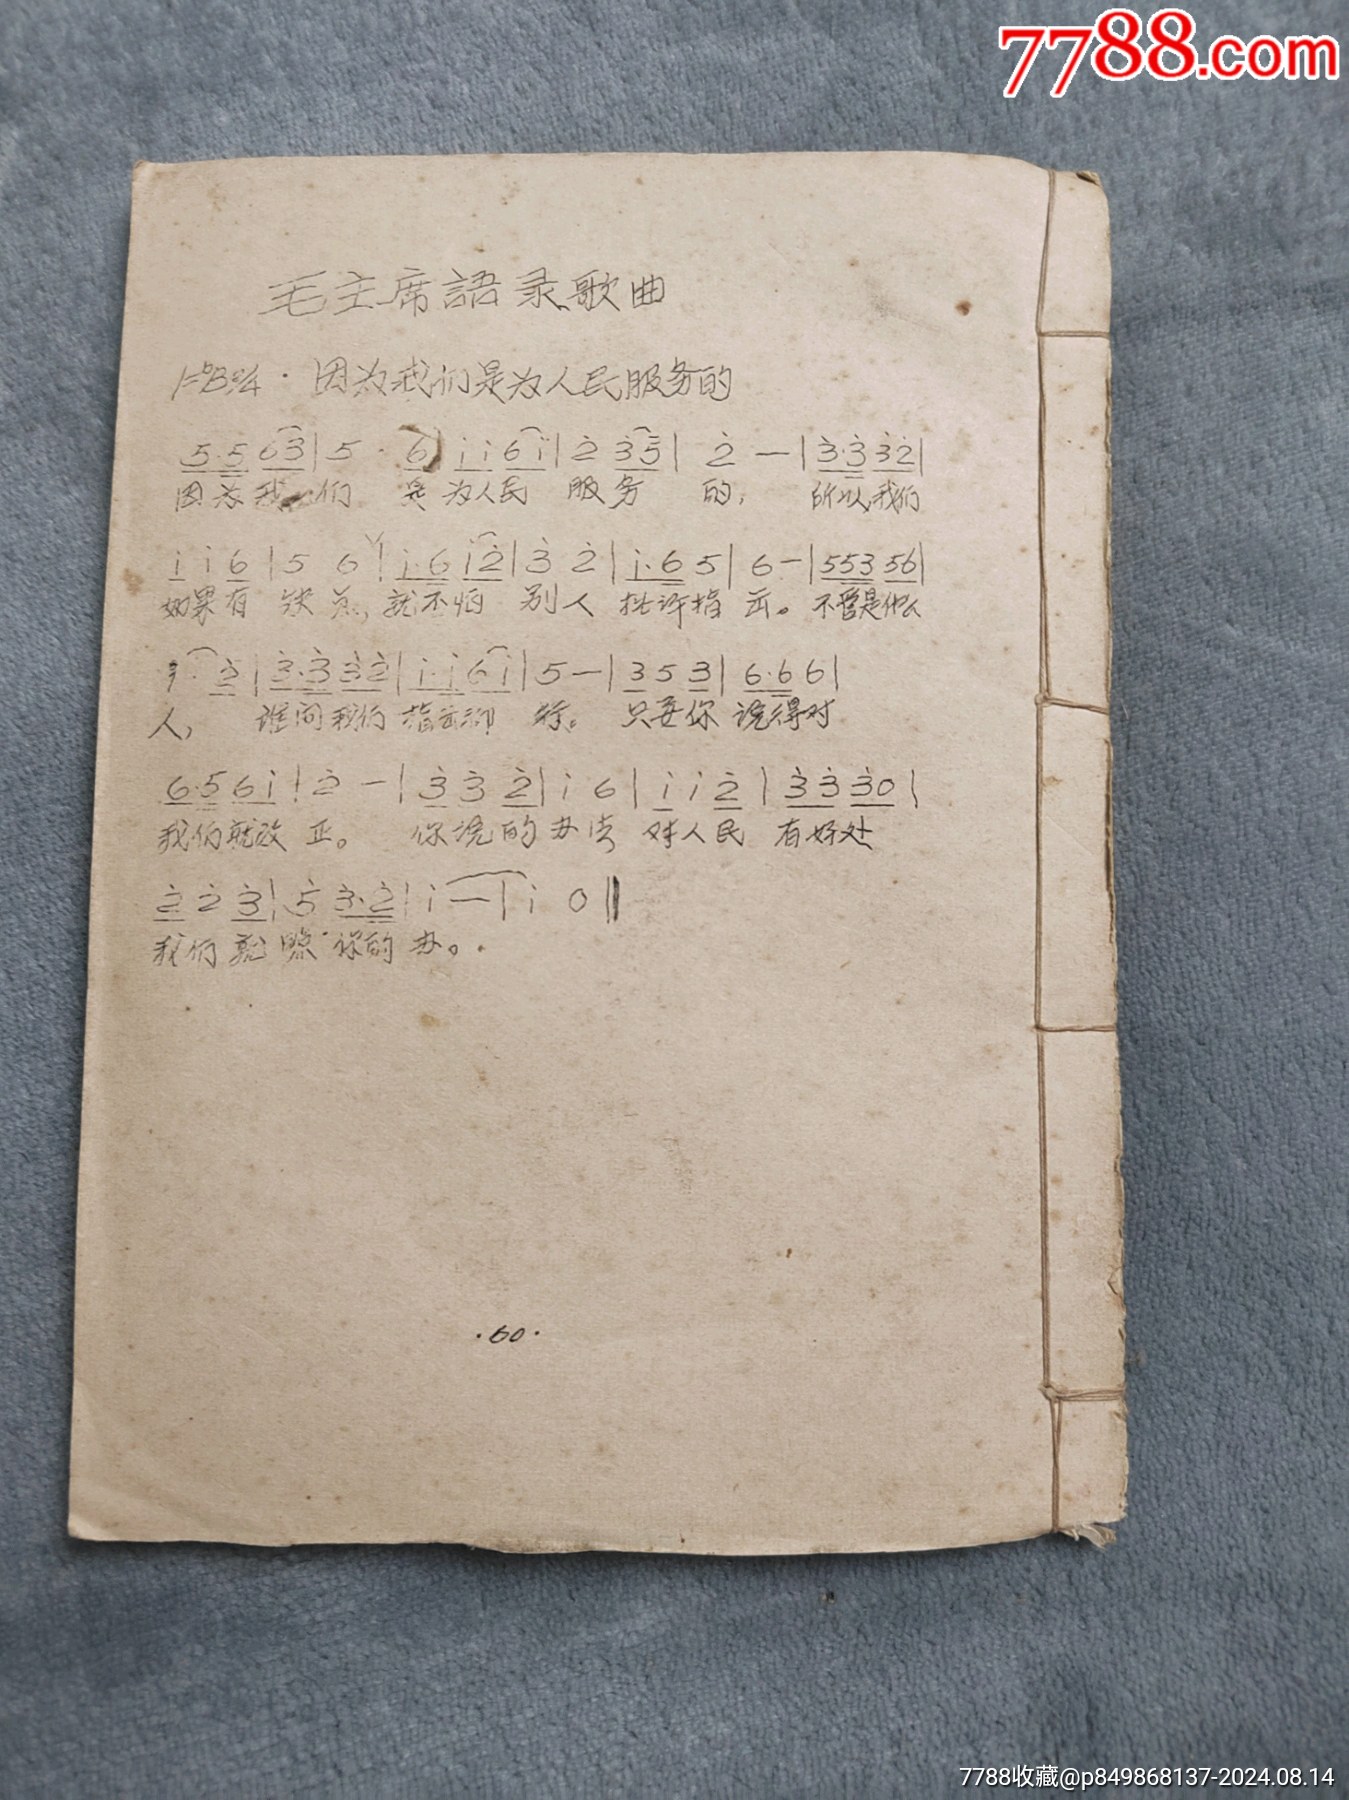 7788.com
毛主席語录歌曲
1=ᵇB 2/4 · 因为我们是为人民服务的
5·5 63|5 · 6|i i 6i|2̇ 3̇5̇|2̇ —|3̇·3̇ 3̇2̇|
因为我们 是为人民 服务 的, 所以我们
i i 6|5 6|i·6 i2̇|3̇ 2̇|i·6 5|6—|553 56|
如果有 缺点,就不怕 别人 批评指出。不管是什么
3̇ · 2̇|3̇·3̇ 3̇2̇|i·i 6i|5—|3 5 3|6·6 6|
人, 谁向我们 指出都 行。 只要你 说得对
6·5 6i|2̇ —|3̇ 3̇ 2̇|i 6|i i 2̇|3̇ 3̇ 3̇0|
我们就改 正。 你说的办法 对人民 有好处
2̇ 2̇ 3̇|5̇ 3̇·2̇|i —|i 0‖
我们就照你的办。
·60·
7788收藏@p849868137-2024.08.14